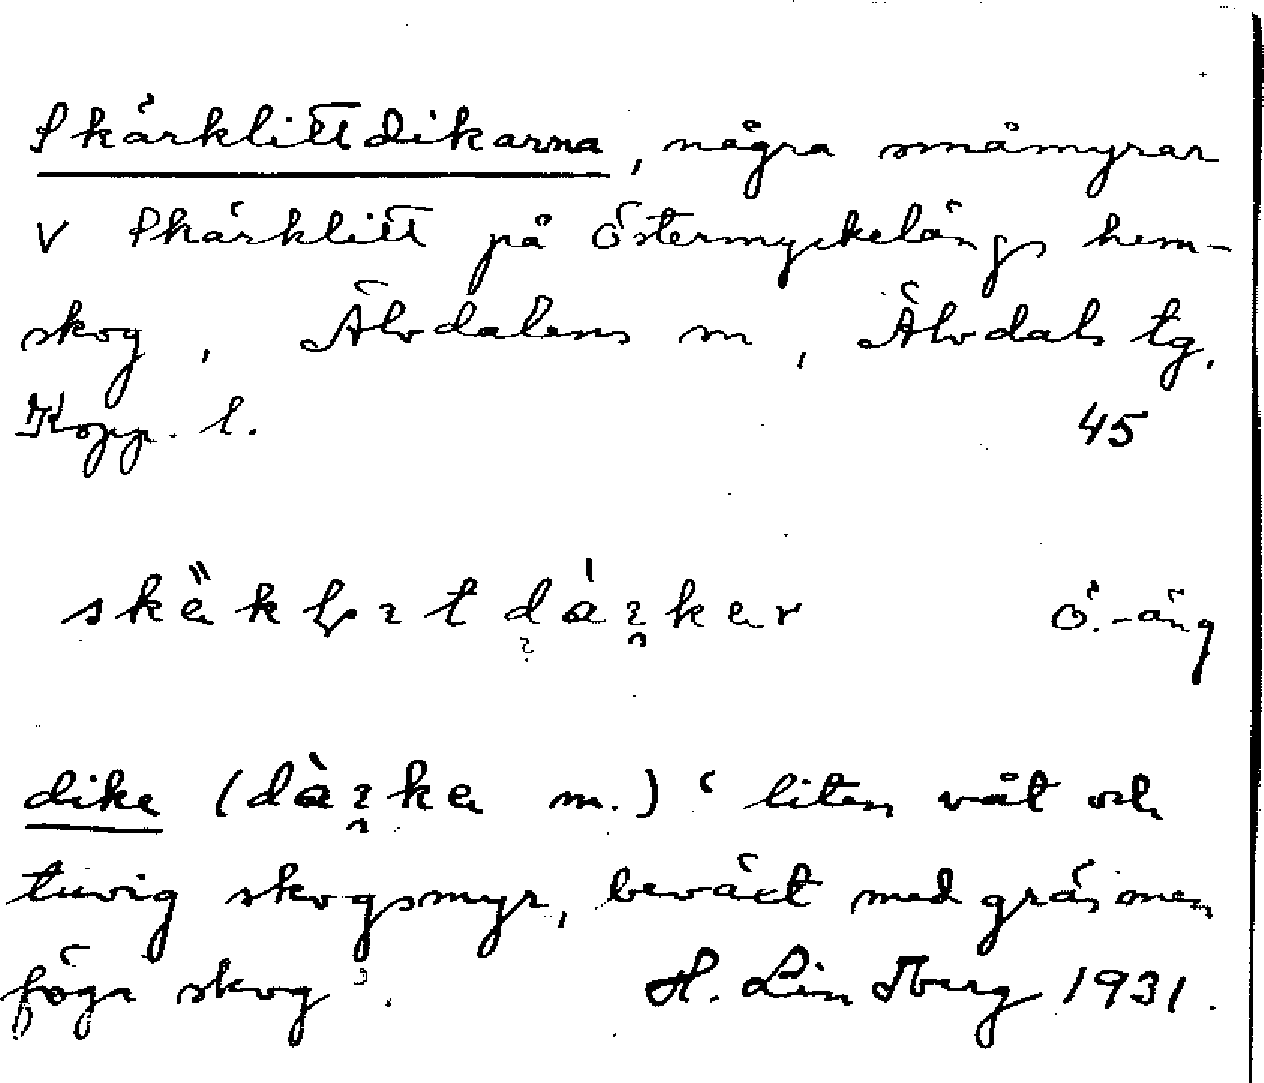 Skärklittdikarna, några småmyrar
v Skärklitt på Östermyckelängs hem-
skog, Älvdalens sn, Älvdals tg,
Kopp. l. 45
Ö.-äng
dike (dàıke m.) ‘liten våt och
tuvig skogsmyr, beväxt med gräs men
föga skog’. H. Lindberg 1931.